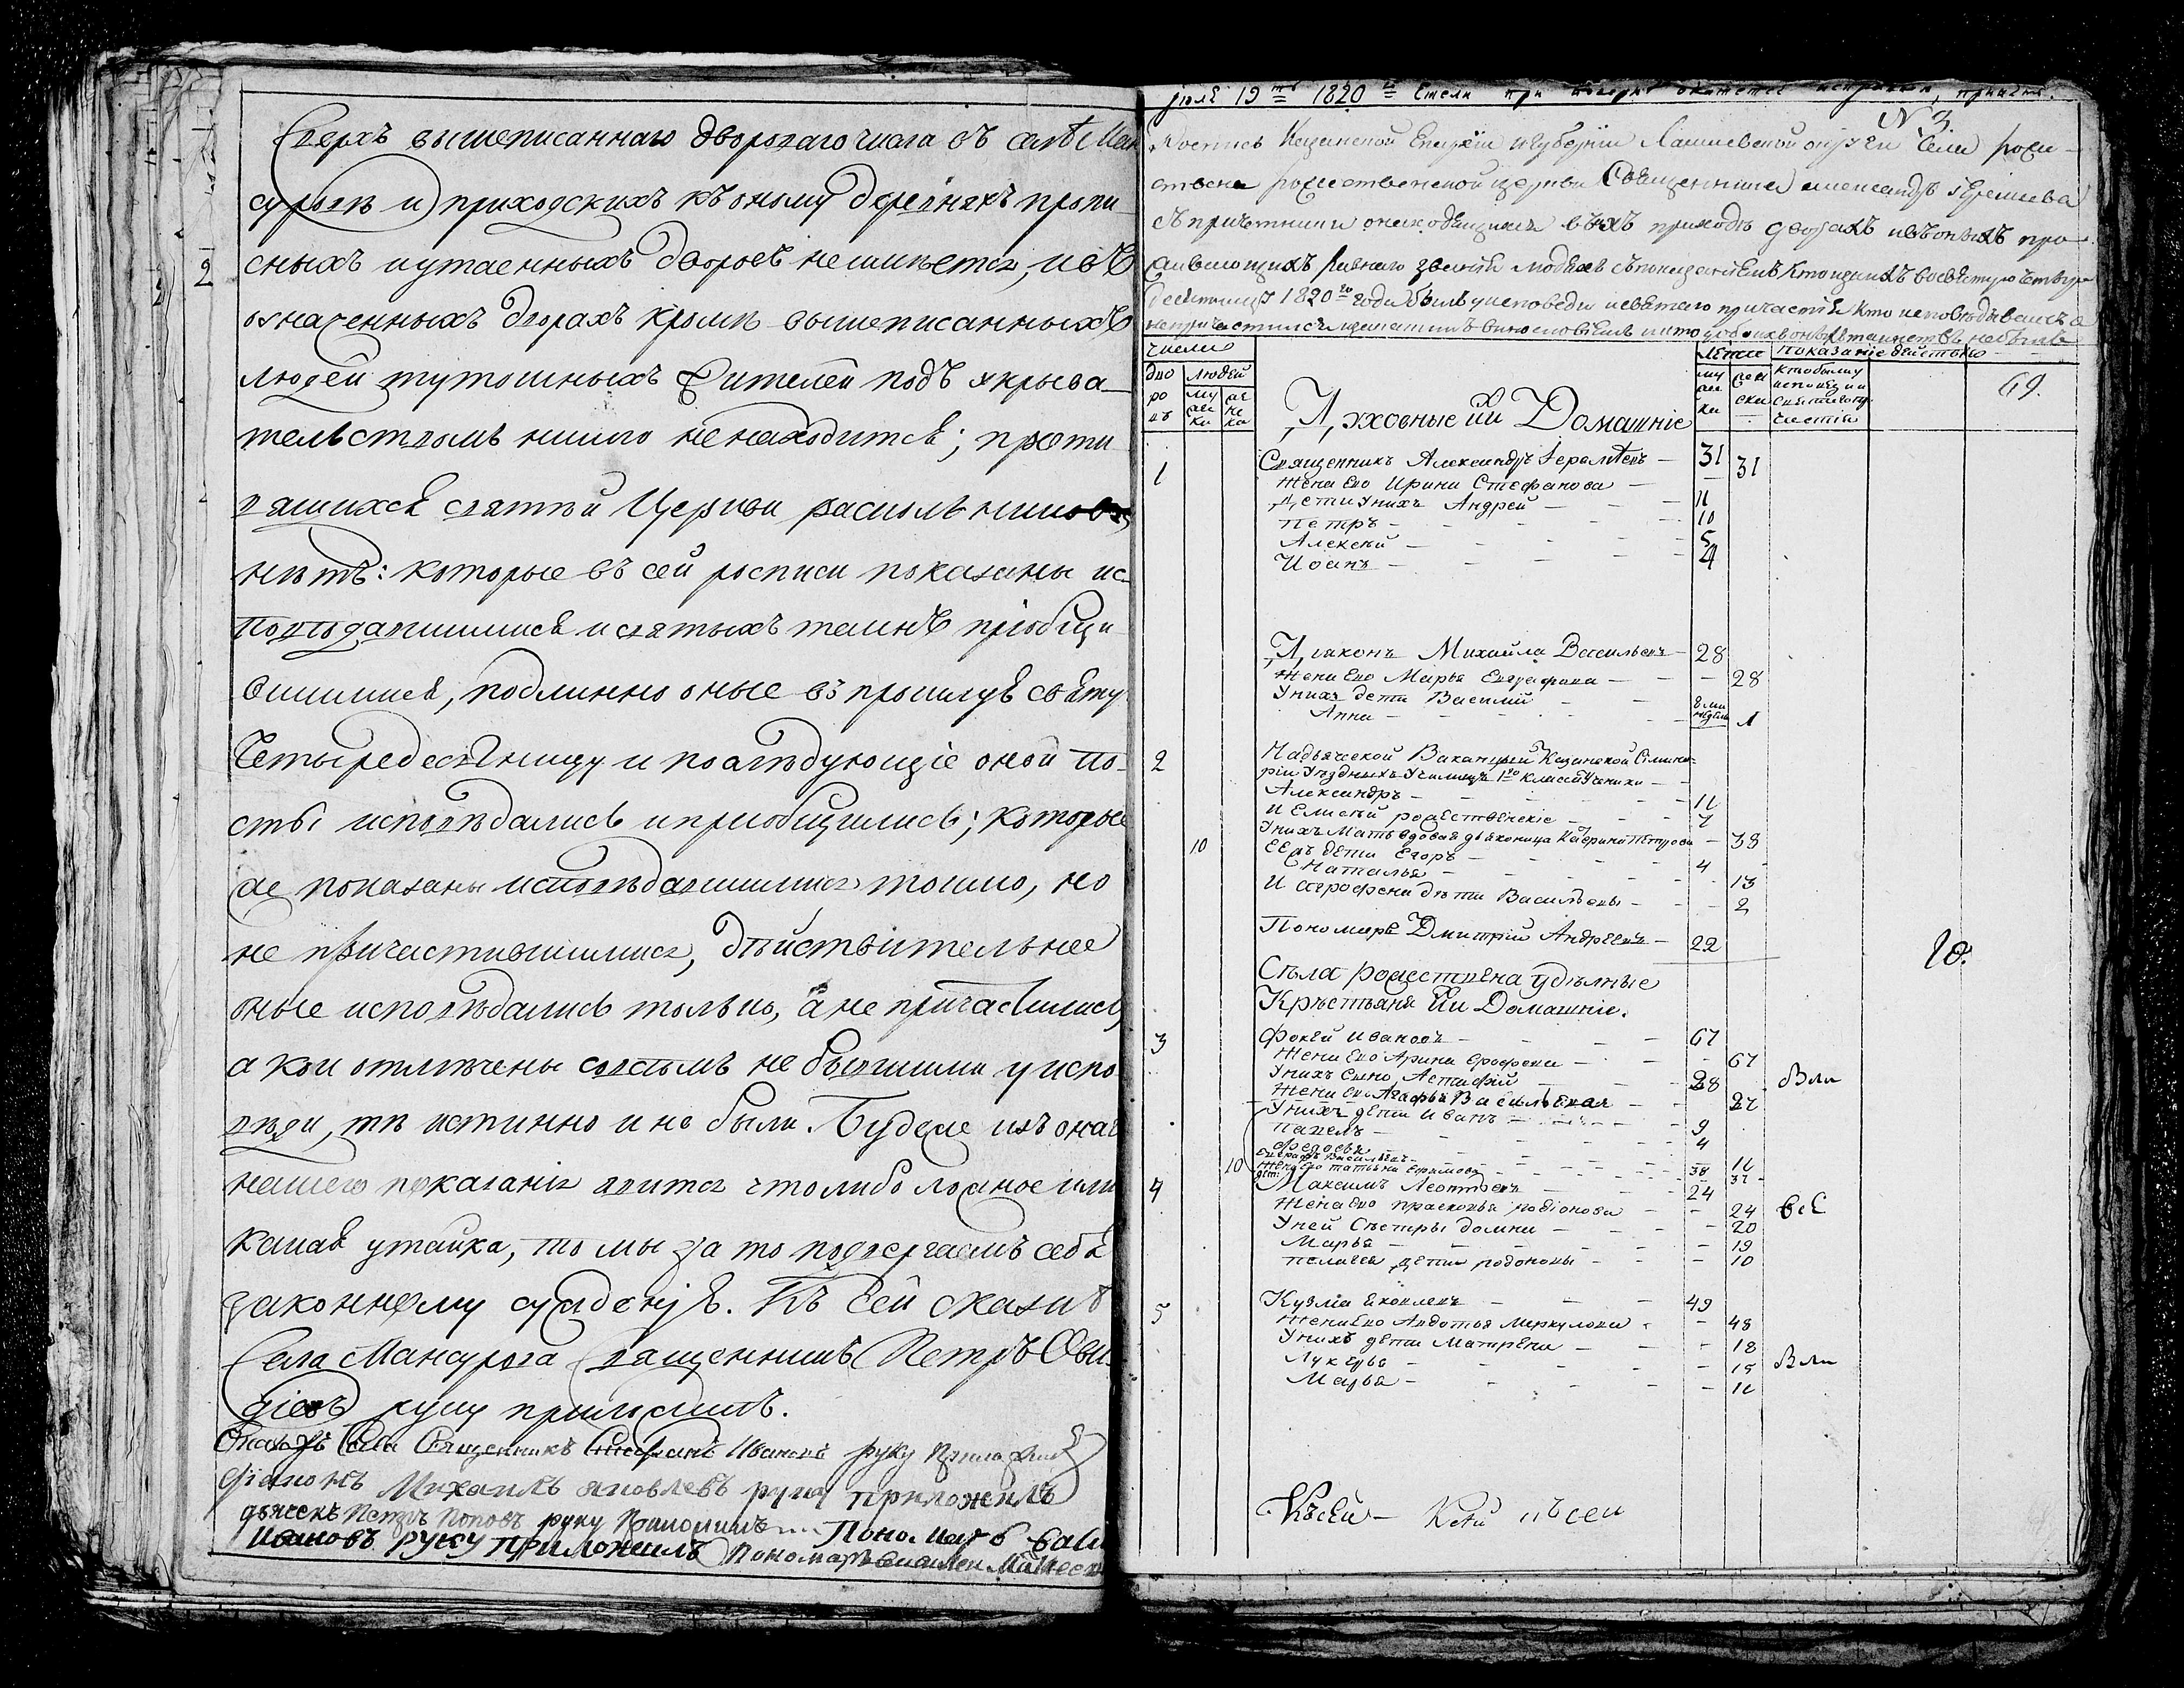 Сверхъ вышеписаннаго дворогаго числа въ селѣ Ман
суровѣ и приходскихъ къ оному деревняхъ пропи
сныхъ и утаенныхъ дворовъ не имѣется, и въ
означенныхъ дворахъ кромѣ вышеписанныхъ
людей тутошныхъ жителей подъ укрыва
тельствомъ никого не находится; проти
вящихся святой Церкви раскольниковъ
нѣтъ: которые въ сей росписи показаны ис
повѣдавшимися и святыхъ таинъ пріобщи
вшимися, подлинно оные въ прошлую святую
Четыредесятницу и послѣдующіе оной по
сты исповѣдались и пріобщились; которые
же показаны исповѣдавшимися токмо, но
не причастившимися, дѣйствительнее
оные исповѣдались только, а не причастились,
а кои отмѣчены совсѣмъ не бывшими у испо
вѣди, тѣ истинно и не были. Будеже изъ онаго
нашего показанія явится что либо ложное или
какая утайка, то мы за то подвергаемъ себя
законному сужденію. Къ сей сказкѣ
Села Мансурова Священникъ Петръ
руку приложилъ.
Священникъ Стефанъ Ивановъ руку приложилъ
Діаконъ Михаилъ Яковлевъ руку приложилъ
дьячекъ Петръ Поповъ руку приложилъ Пономарь
Ивановъ руку приложилъ Пономарь
2
іюля 19 1820
№ 3
Роспись Казанской Епархіи и губерніи Лаишевской округи Села рож
ствена рождественской церкви Священника Александра
съ причетники онаходящихся въ ихъ приходѣ дворахъ и въ оныхъ про
живающихъ разнаго званія людяхъ съ показаніемъ кто изъ нихъ во святую четыре
десятницу 1820 го года былъ у исповеди и святаго причастія кто исповѣдывался
число
дво
ро
въ
людей
му
жи
же
на
Духовные ихъ Домашніе
лета
показаніе действо
му
жи
69.
1
Священникъ Александръ — 31
жена Его Ирина Стефанова — 31
Дети у нихъ Андрей — 11
Петръ — 10
Алексей — 5
Иоанъ — 4
Діаконъ Михайла Васильевъ — 28
жена Его Марья Евграфова — 28
У нихъ дети Василий
Анна — 1
2
Надьяческой Ваканціи Казанской Семина
ріи Уездныхъ Училищъ 1го класса Ученики —
Александръ — 11
И Елисей рождественскіе
У нихъ Мать вдовая дьяконица Катерина Петрова — 38
10
Ее дети Егоръ — 4
Наталья — 13
И Аграфена дети Васильевы — 2
Пономарь Дмитрій Андреевъ — 22
20.
Села рождествена удѣльные
Крестьяне ихъ Домашніе.
3
Фокей Ивановъ — 67
Жена Его Арина Ерофеева — 67
У нихъ сынъ Астафій — 28 Были
Жена Его Агафья Васильевая — 27
У нихъ дети Иванъ — 9
Павелъ — 4
Федосья — 11
Васильевъ — 38
10
жена Его Татьяна Ефимова — 37
4
Максимъ Леонтьевъ — 24
Жена Его прасковья родіонова — 24 Все
У ней Сестры домна — 20
Марья — 19
пелагея дети родіоновы — 10
5
Кузма Яковлевъ — 49
жена Его Авдотья Меркулова — 48
У нихъ дети Матрена — 18
Лукерья — 15 Были
Марья — 11
Къ сей Къ сей